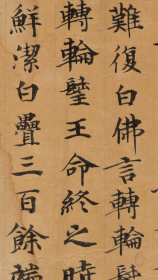 難復白佛言轉輪聖
轉輪聖王命終之時
鮮潔白疊三百餘端